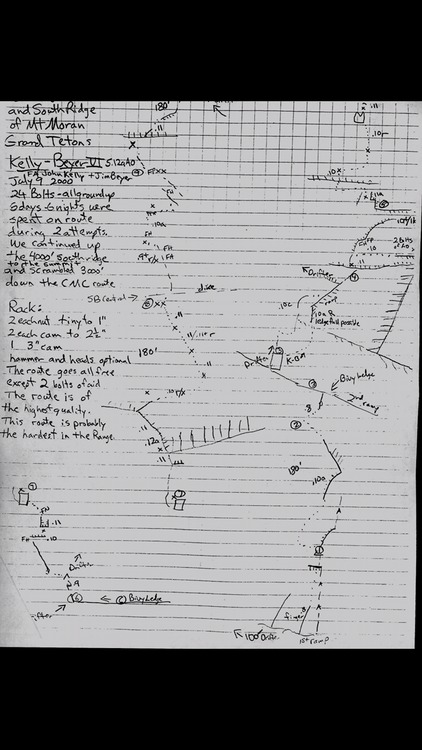 and South Ridge
of Mt Moran
Grand Tetons
Kelly-Beyer VI 5.12a A0
FA John Kelly + Jim Beyer
July 9 2000
24 Bolts-all ground up
6 nights were
spent on route
during 2 attempts.
We continued up
the 4000' south ridge
to the summit
and scrambled 3000'
down the CMC route
Rack:
2 each nut tiny to 1"
2 each cam to 2½"
1 3" cam
hammer and heads optional
The route goes all free
except 2 bolts of aid
The route is of
the highest quality.
This route is probably
the hardest in the Range
180'
.11
.10r
FH
.11a
dike
.11/.11r
180'
.10 r/x
.12a
.11
Drifter
.10
2 Bolts
10c
ledge fall possible
Drifter
Bivy ledge
2nd ramp
.8
180'
.10a
finger
1st ramp
100'
7
.11
.10
Drifter
6
6 Bivy ledge